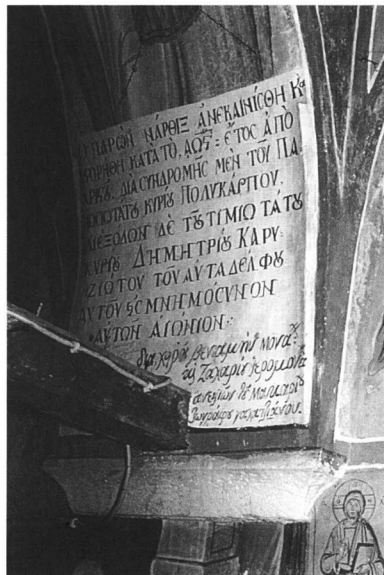 ΠΑΡῺΝ ΝΆΡΘΙΞ ἈΝΕΚΑΙΝΊΣΘΗ Κ
ΚΑΤᾺ ΤῸ, ΑΩ : ἜΤΟΣ ἈΠῸ
ΔΙᾺ ΣΥΝΔΡΟΜΗ͂Σ ΜῈΝ ΤΟΥ͂ ΠΑ
ΚΥΡΊΟΥ ΠΟΛΥΚΆΡΠΟΥ,
ΔΙΕΞΌΔΩΝ ΔῈ ΤΟΥ͂ ΤΙΜΙΩΤΆΤΟΥ
ΚΥΡΊΟΥ ΔΗΜΗΤΡΊΟΥ ΚΑΡΥ:
ΖΙΏΤΟΥ ΤΟΥ͂ ΑΥ̓ΤΑΔΈΛΦΟΥ
ΑΥ̓ΤΟΥ͂ ΜΝΗΜΌΣΥΝΟΝ
ΑΥ̓ΤΩ͂Ν ΑἸΏΝΙΟΝ:
διὰ χειρὸς βενιαμὴν μονα
ζαχαρίου ἱερομονά
μακαρίου
ζωγράφου γαλατζιάνου.